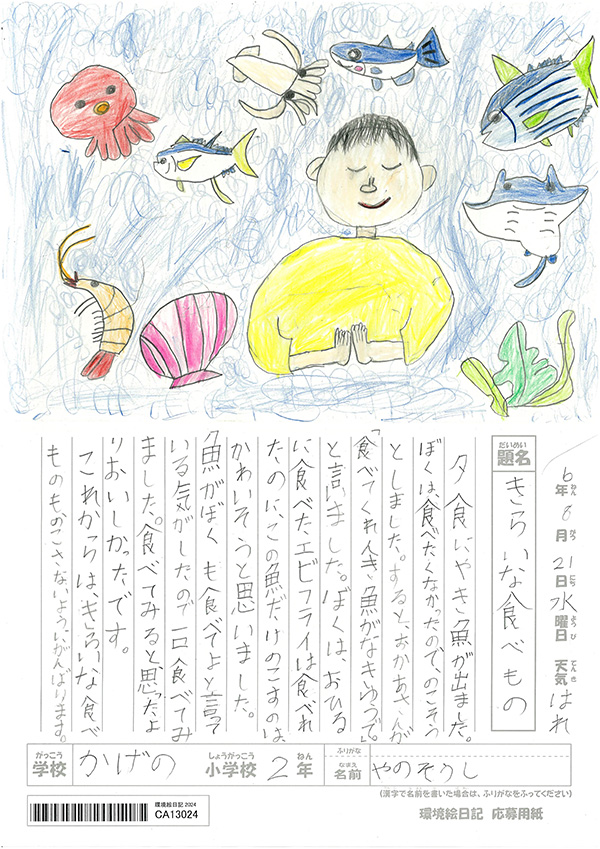 6年ねん 8月がつ 21日にち 水曜日ようび 天気てんき はれ
だいめい
題名 きらいな食べもの
夕食にやき魚が出ました。
ぼくは、食べたくなかったので、のこそう
としました。すると、おかあさんが
「食べてくれんき、魚がなきゆうで。」
と言いました。ぼくは、おひる
に食べたエビフライは食べれ
たのに、この魚だけのこすのは、
かわいそうと思いました。
魚がぼくも食べてよと言って
いる気がしたので一口食べてみ
ました。食べてみると思ったよ
りおいしかったです。
これからは、きらいな食べ
ものも、のこさないよういがんばります。
がっこう しょうがっこう ねん ふりがな
学校 かげの 小学校 2年 なまえ 名前 やのそうし
(漢字で名前を書いた場合は、ふりがなをふってください)
環境絵日記 2024
CA13024
環境絵日記 応募用紙